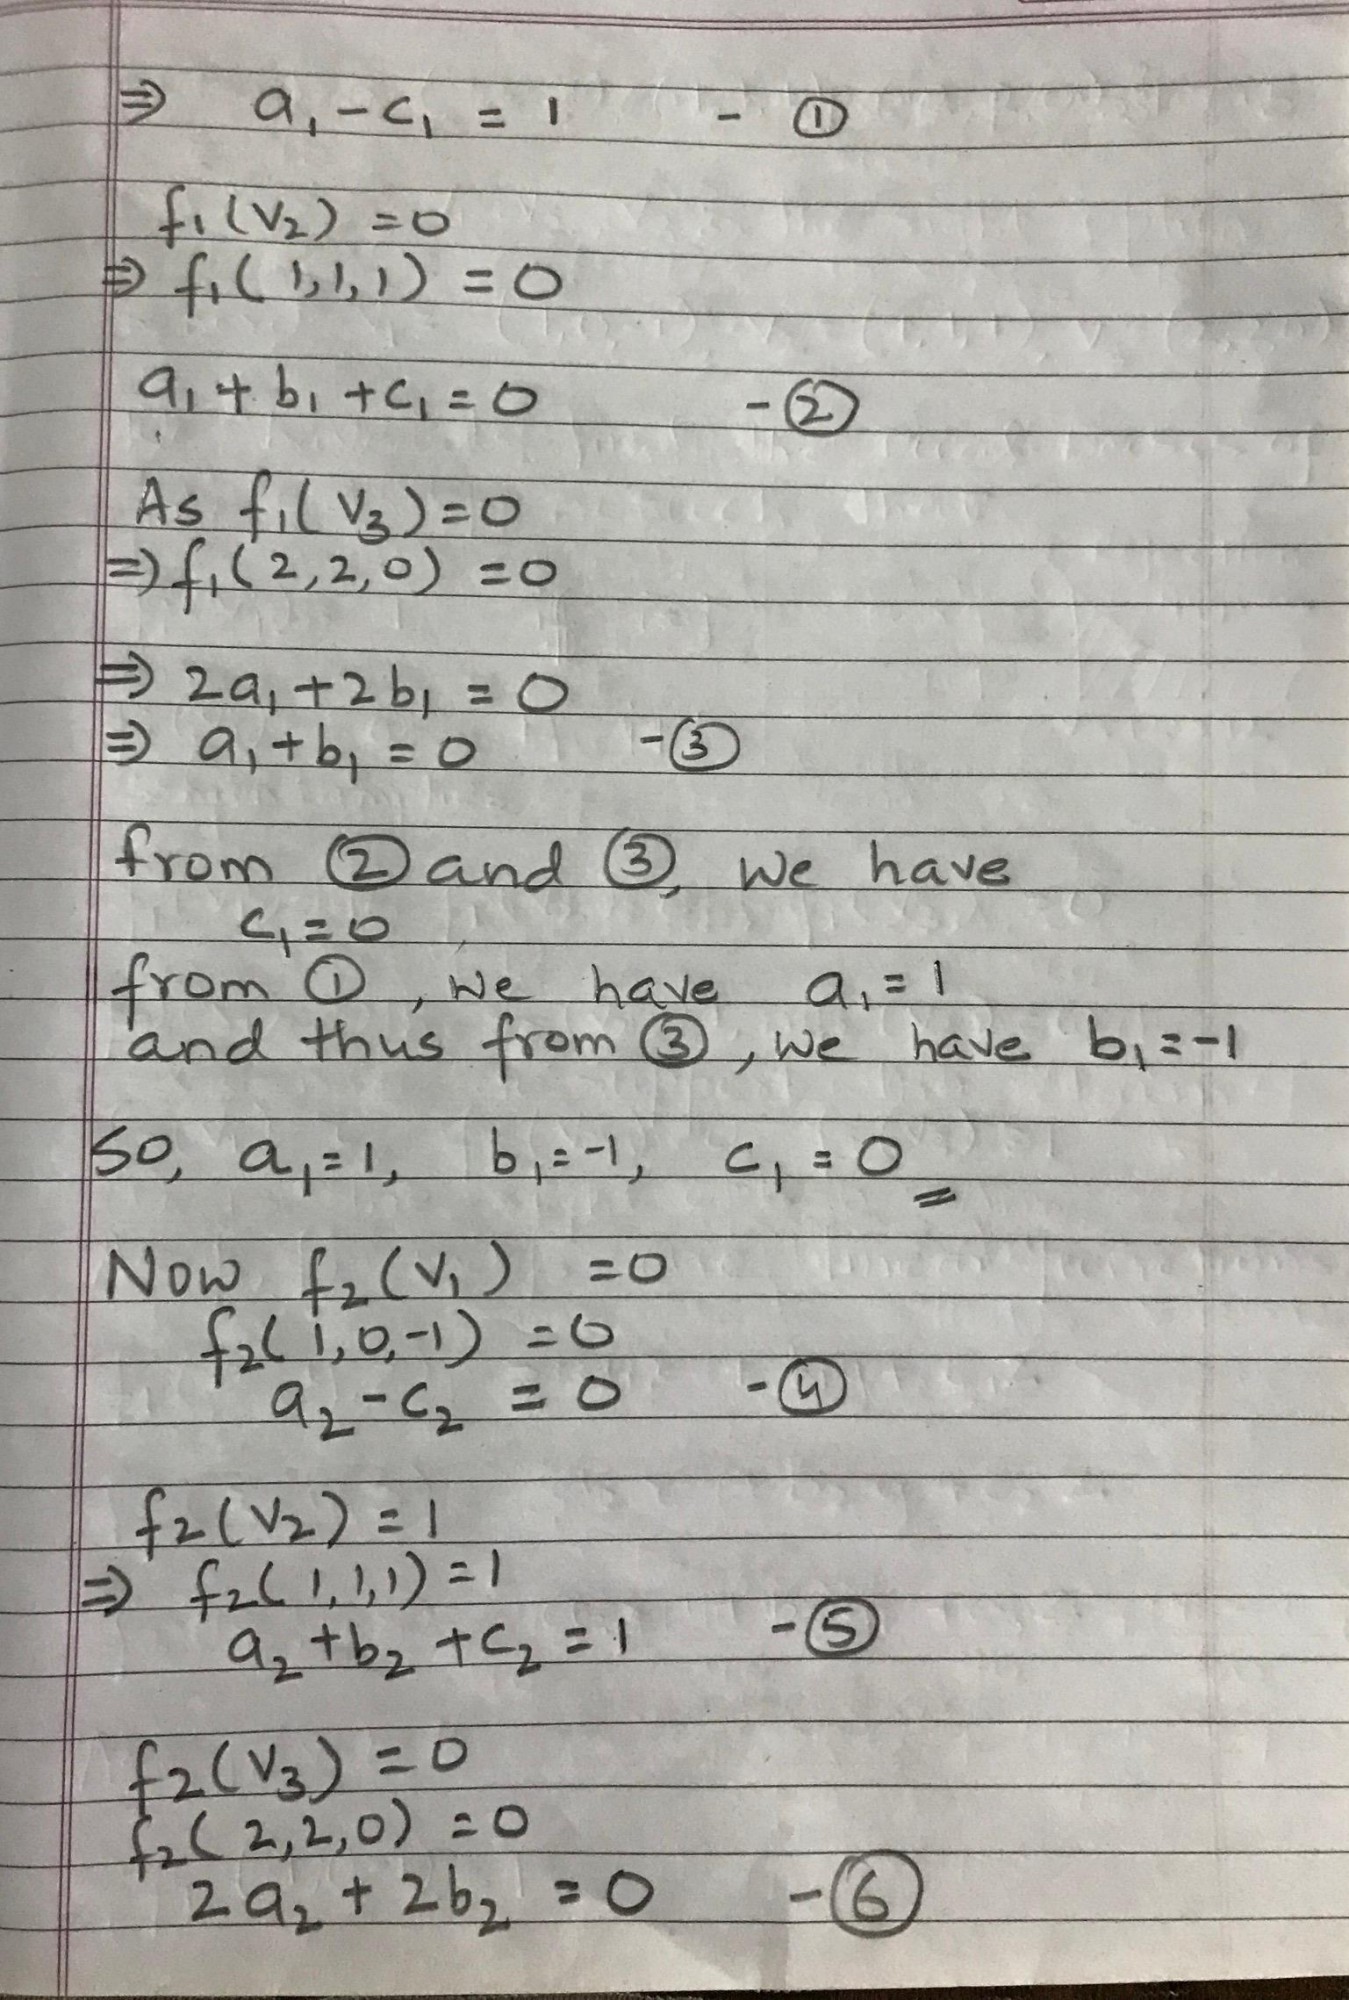 ⇒ a₁ - c₁ = 1 - ①
f₁(V₂) = 0
⇒ f₁(1,1,1) = 0
a₁ + b₁ + c₁ = 0 - ②
As f₁(V₃) = 0
⇒ f₁(2,2,0) = 0
⇒ 2a₁ + 2b₁ = 0
⇒ a₁ + b₁ = 0 - ③
from ② and ③, we have
c₁ = 0
from ①, we have a₁ = 1
and thus from ③, we have b₁ = -1
So, a₁ = 1, b₁ = -1, c₁ = 0
Now f₂(V₁) = 0
f₂(1,0,-1) = 0
a₂ - c₂ = 0 - ④
f₂(V₂) = 1
⇒ f₂(1,1,1) = 1
a₂ + b₂ + c₂ = 1 - ⑤
f₂(V₃) = 0
f₂(2,2,0) = 0
2a₂ + 2b₂ = 0 - ⑥